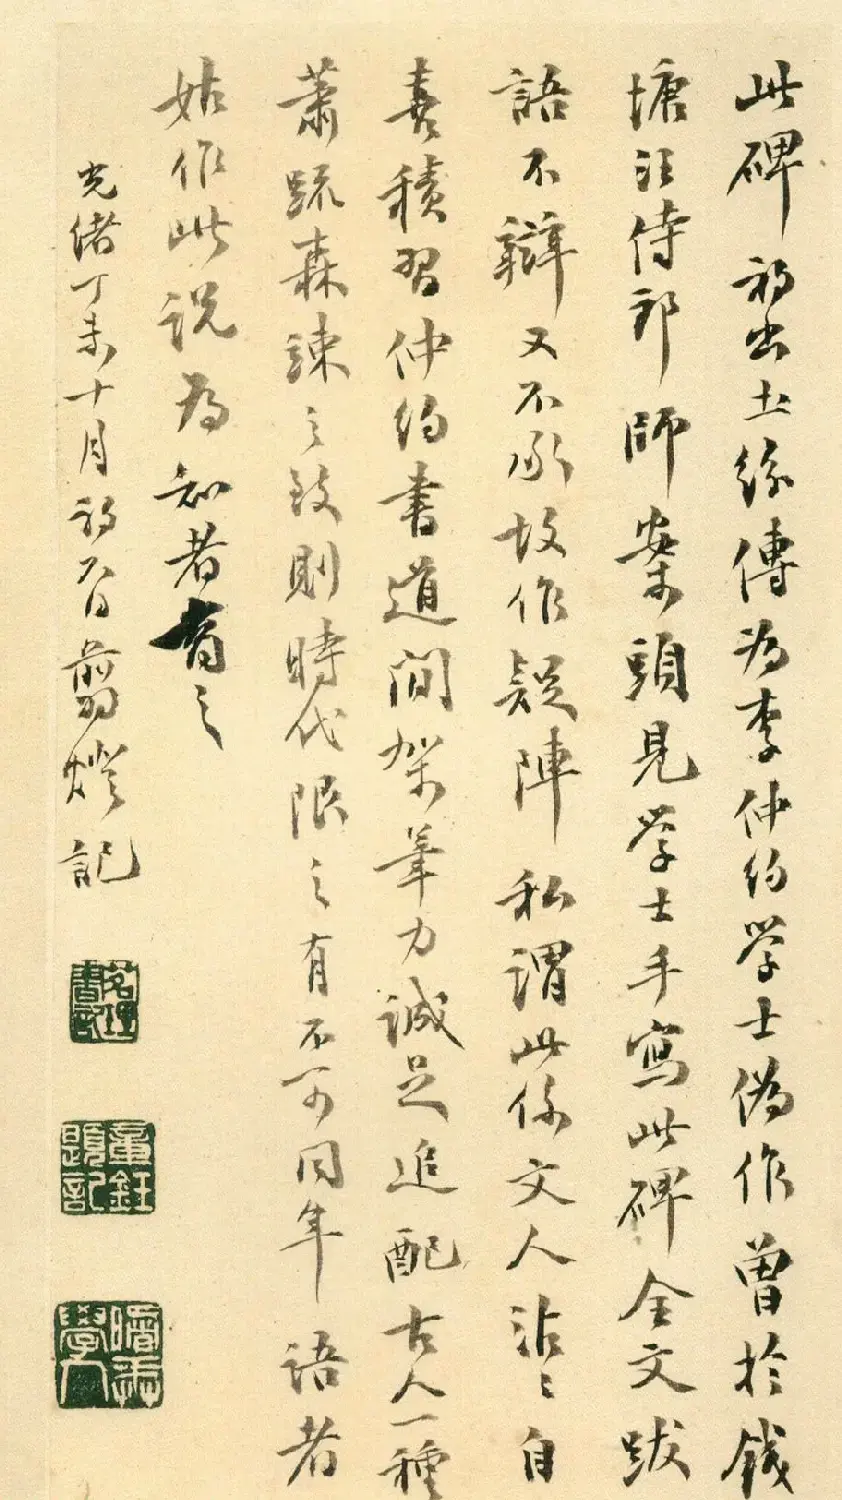 此碑初出土綵傳為李仲約學士偽作曾於錢
塘汪侍郎師案頭見學士手寫此碑全文跋
語不辯又不承故作疑陣私謂此係文人沾沾自
喜積習仲約書道間架筆力誠足追配古人一種
蕭疏森竦之致則時代限之有不可同年語者
姑作此說為知者省之
光緒丁未十月初八日翦燈記
茗理書記
童鈺題記
學人